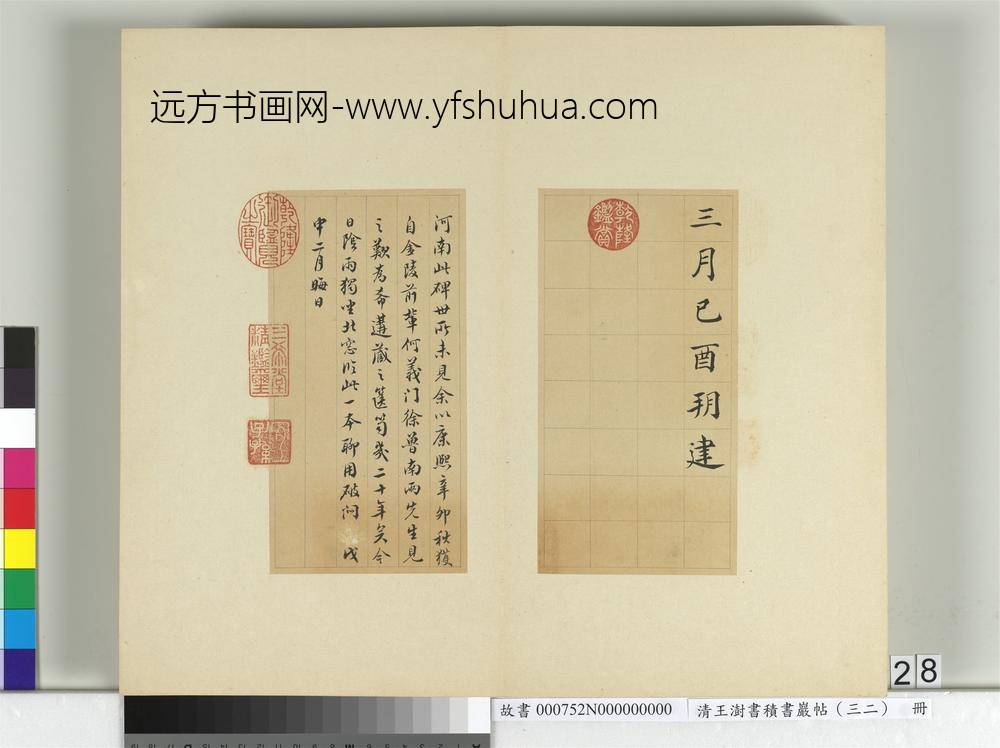 远方书画网-www.yfshuhua.com
三月己酉朔建
乾隆鑑賞
河南此碑世所未見余以康熙辛卯秋獲
自金陵前輩何義门徐魯南兩先生見
之歎為希遘藏之篋笥幾二十年矣今
日陰雨獨坐北窓臨此一本聊用破闷 戊
申二月晦日
乾隆御覽之寶
三希堂精鑑璽
宜子孫
28
故書 000752N000000000
清王澍書積書巖帖（三二） 冊